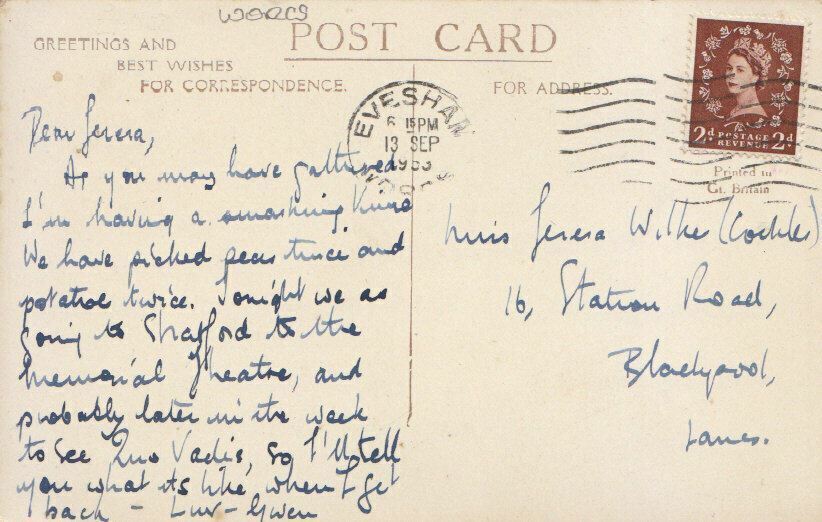 WORCS
POST CARD
GREETINGS AND
BEST WISHES
FOR CORRESPONDENCE.
FOR ADDRESS.
EVESHAM
6 15 PM
13 SEP
1953
2D POSTAGE 2D
REVENUE
Printed in
Gt. Britain
Dear Teresa,
As you may have gathered
I'm having a smashing time
We have picked peas twice and
potatoe twice. Tonight we as
going to Stratford to the
Memorial Theatre, and
probably later in the week
to see Quo Vadis, so I'll tell
you what its like when I get
back - Luv - Gwen
Miss Teresa Wilke (Cockles)
16, Station Road,
Blackpool,
Lancs.